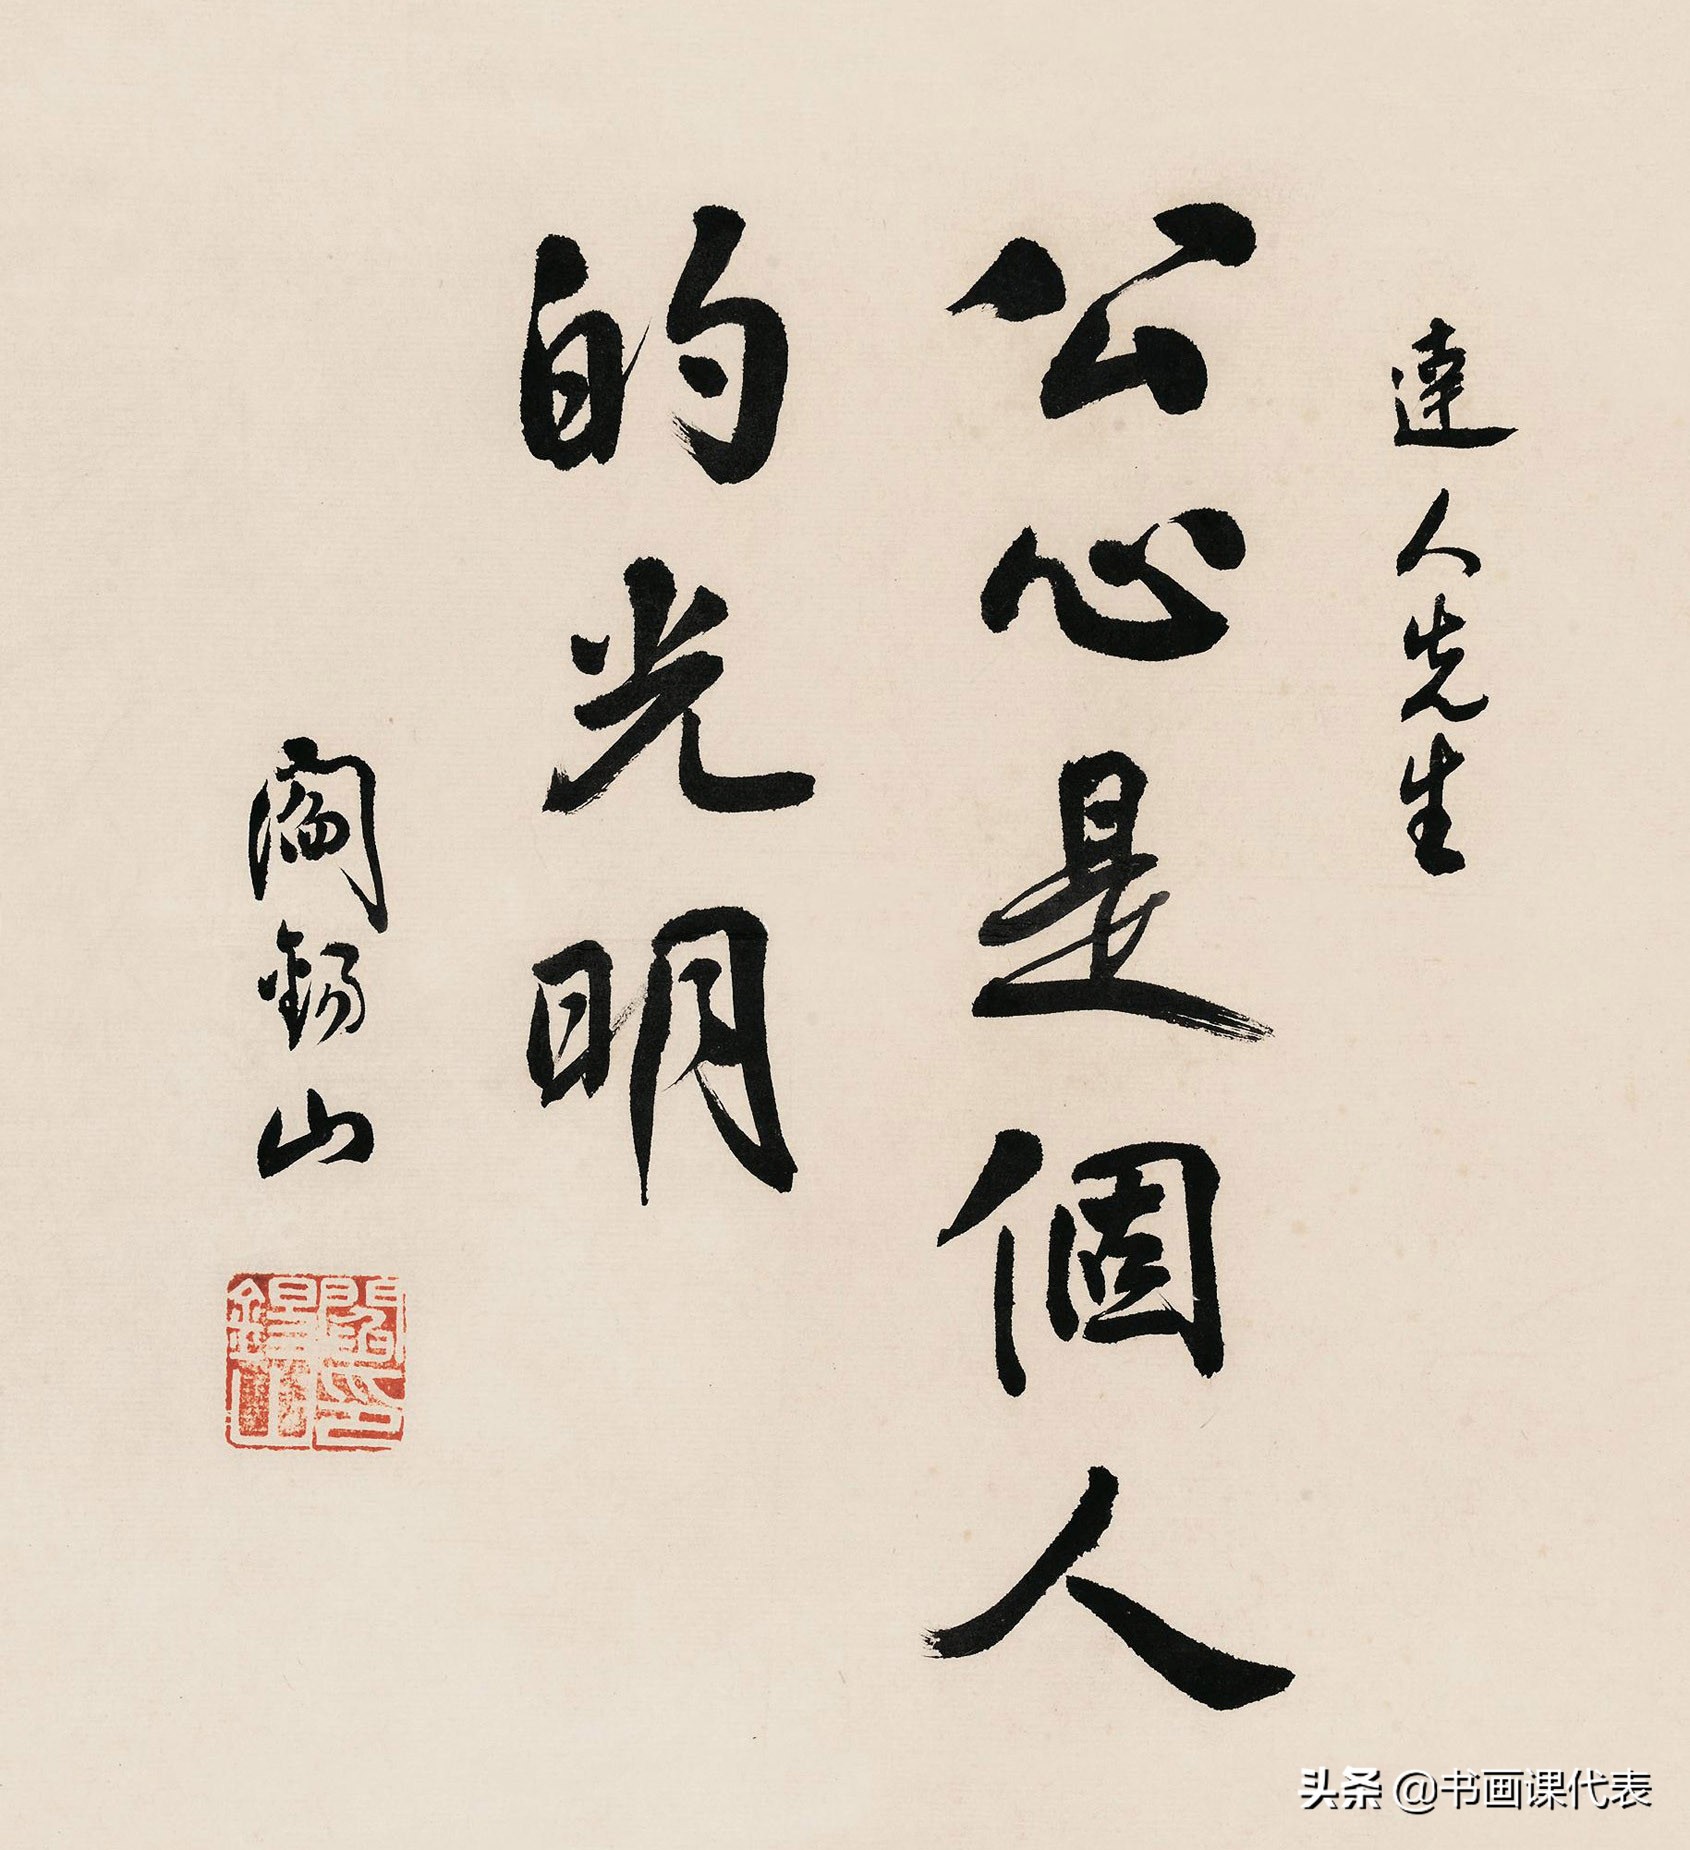 達人先生
公心是個人
的光明
閻錫山
閻錫山印
头条 @书画课代表